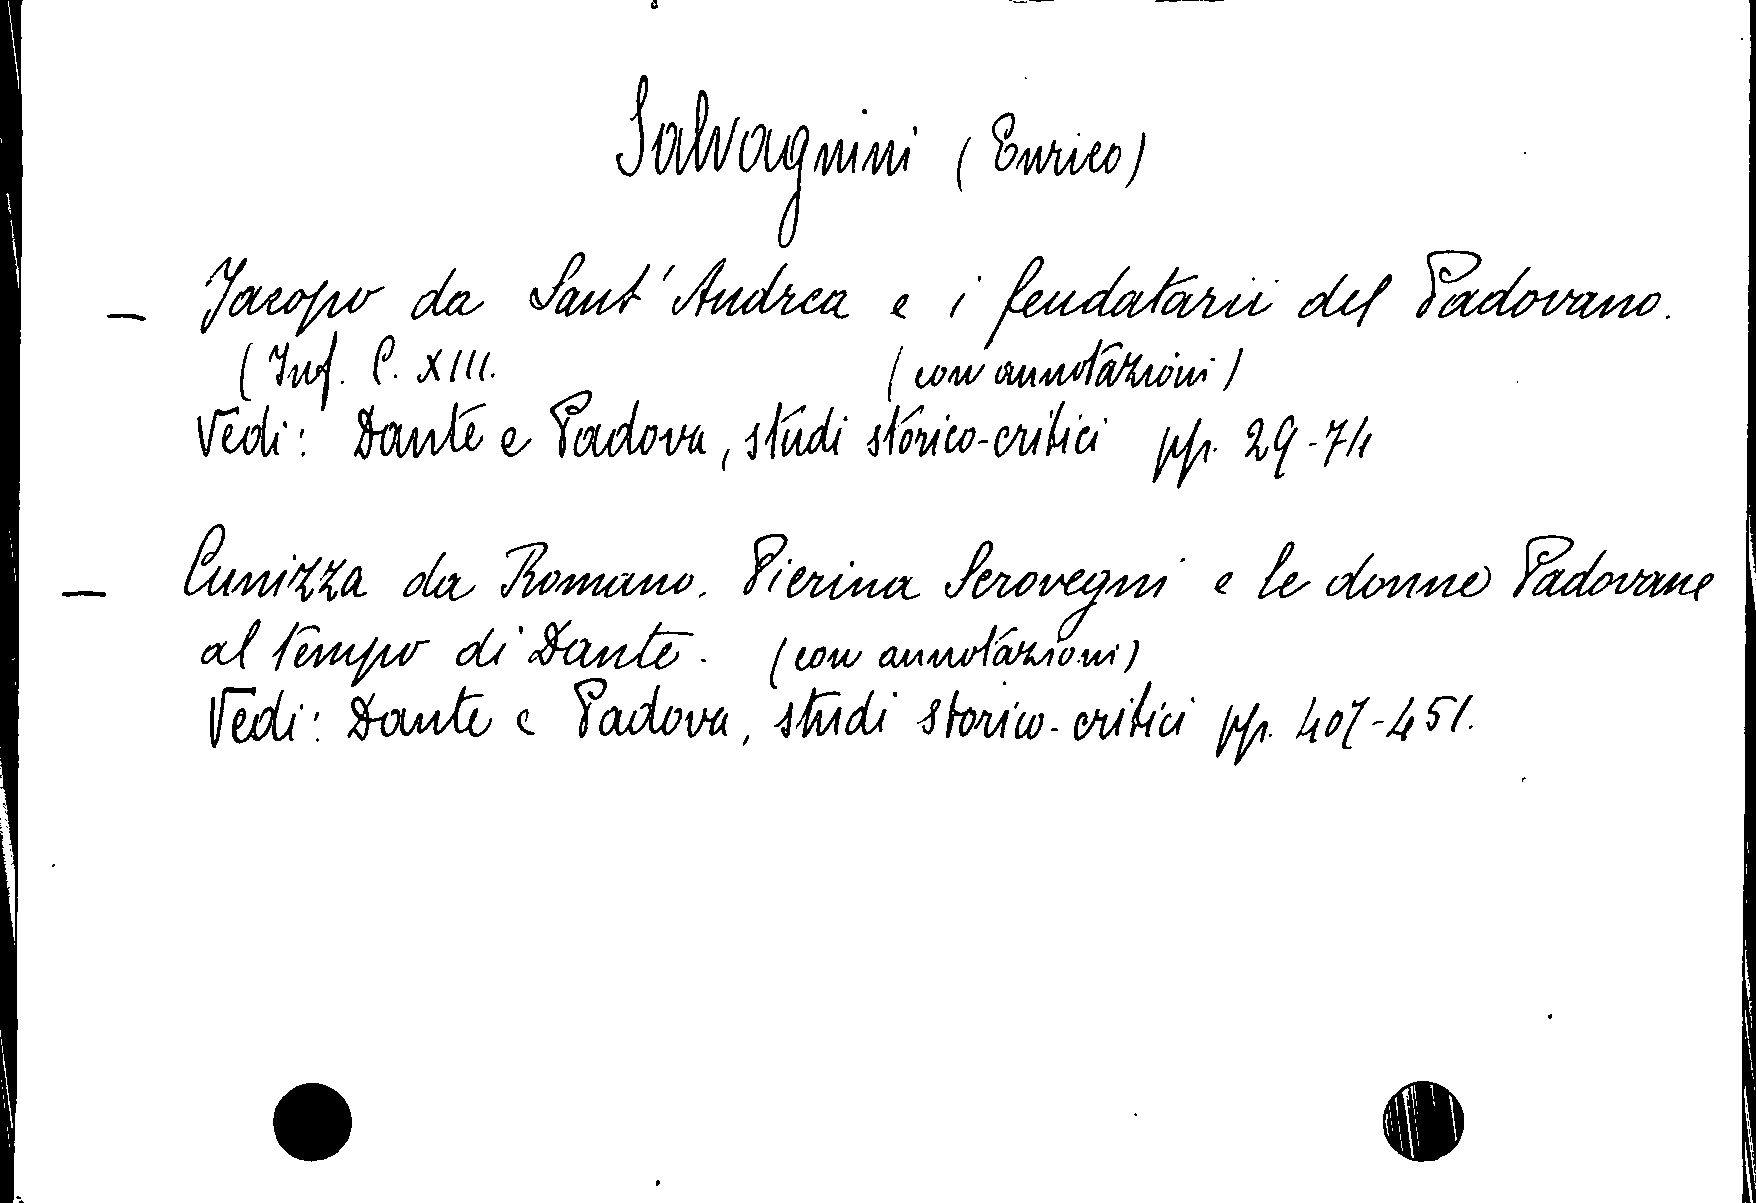 Salvagnini (Enrico)
— Jacopo da Sant'Andrea e i feudatarii del Padovano.
(Inf. C. XIII. (con annotazioni)
Vedi: Dante e Padova, studi storico-critici pp. 29-74
— Cunizza da Romano. Pierina Scrovegni e le donne Padovane
al tempo di Dante. (con annotazioni)
Vedi: Dante e Padova, studi storico-critici pp. 407-451.